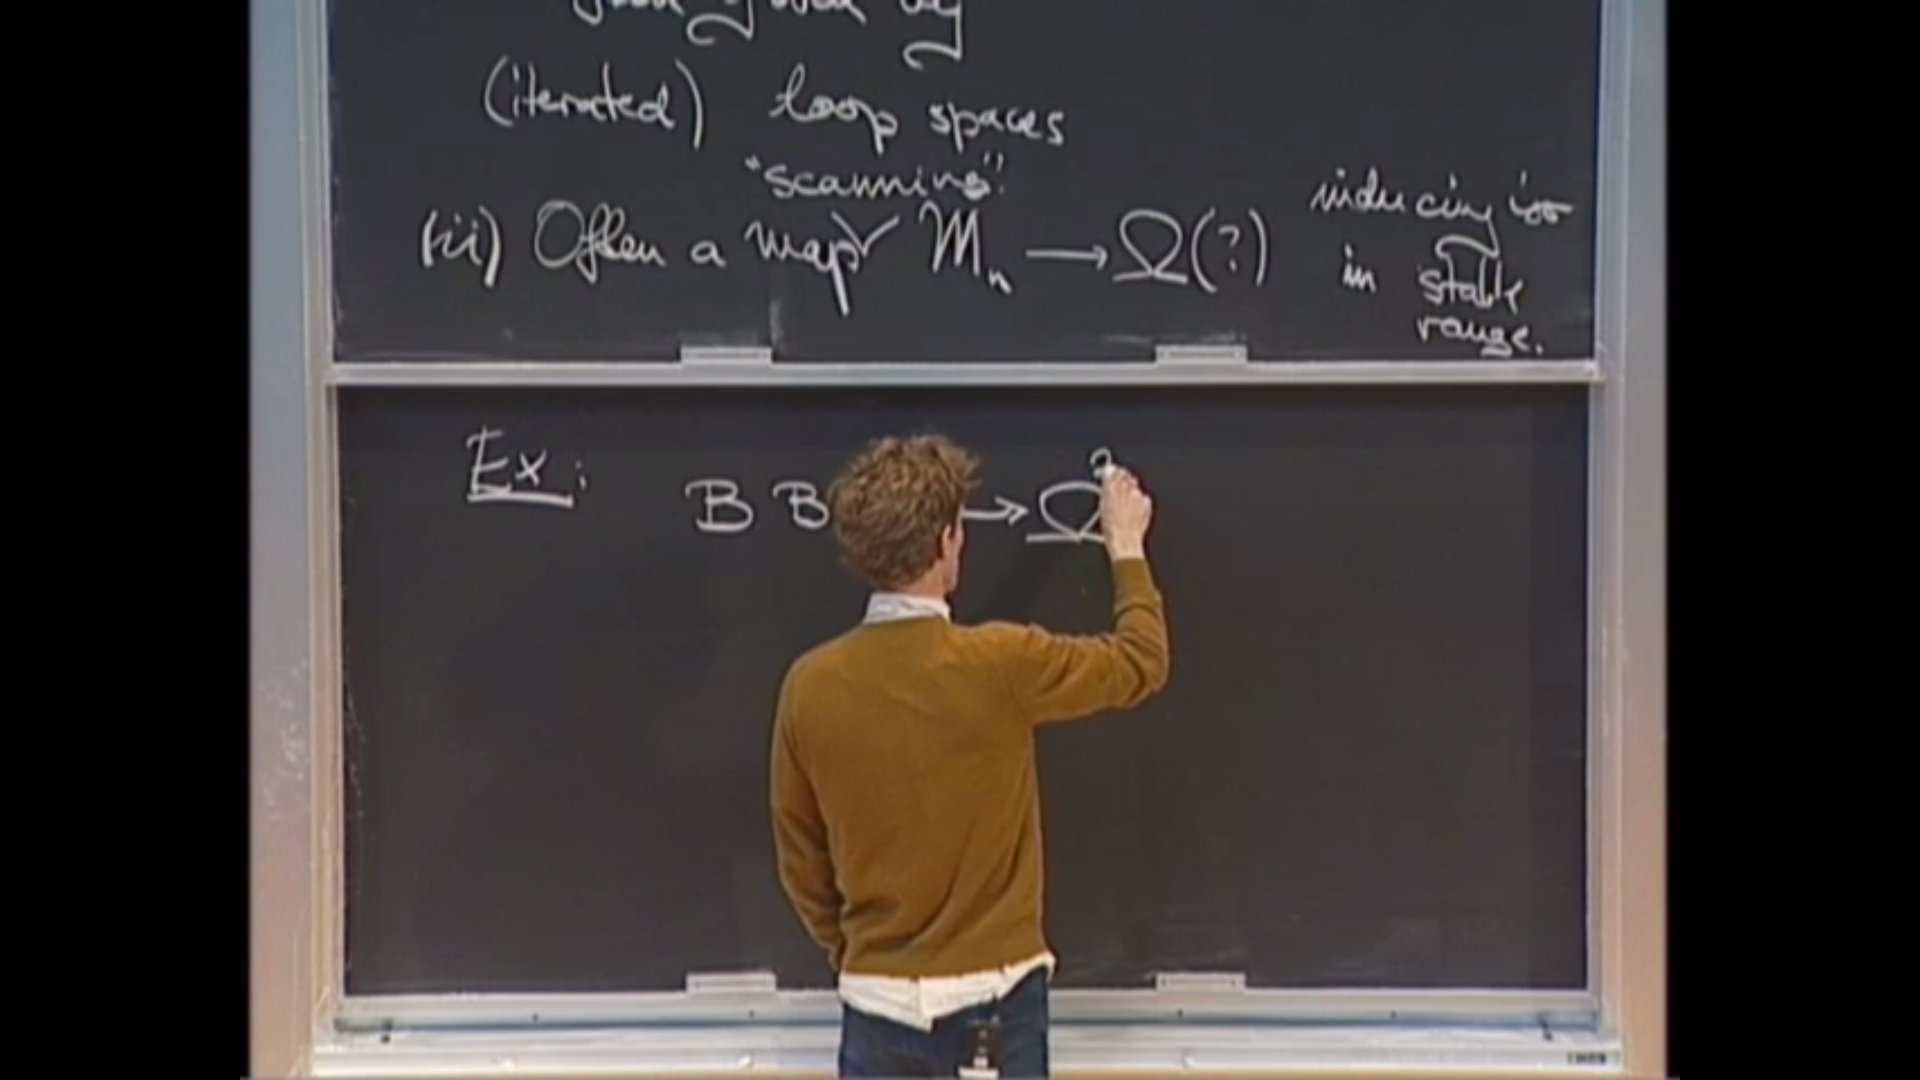 (iterated) loop spaces
"scanning"
(iii) Often a map ✓ Mₙ → Ω(?) inducing iso
in stable
range.
Ex: B B → Ω²